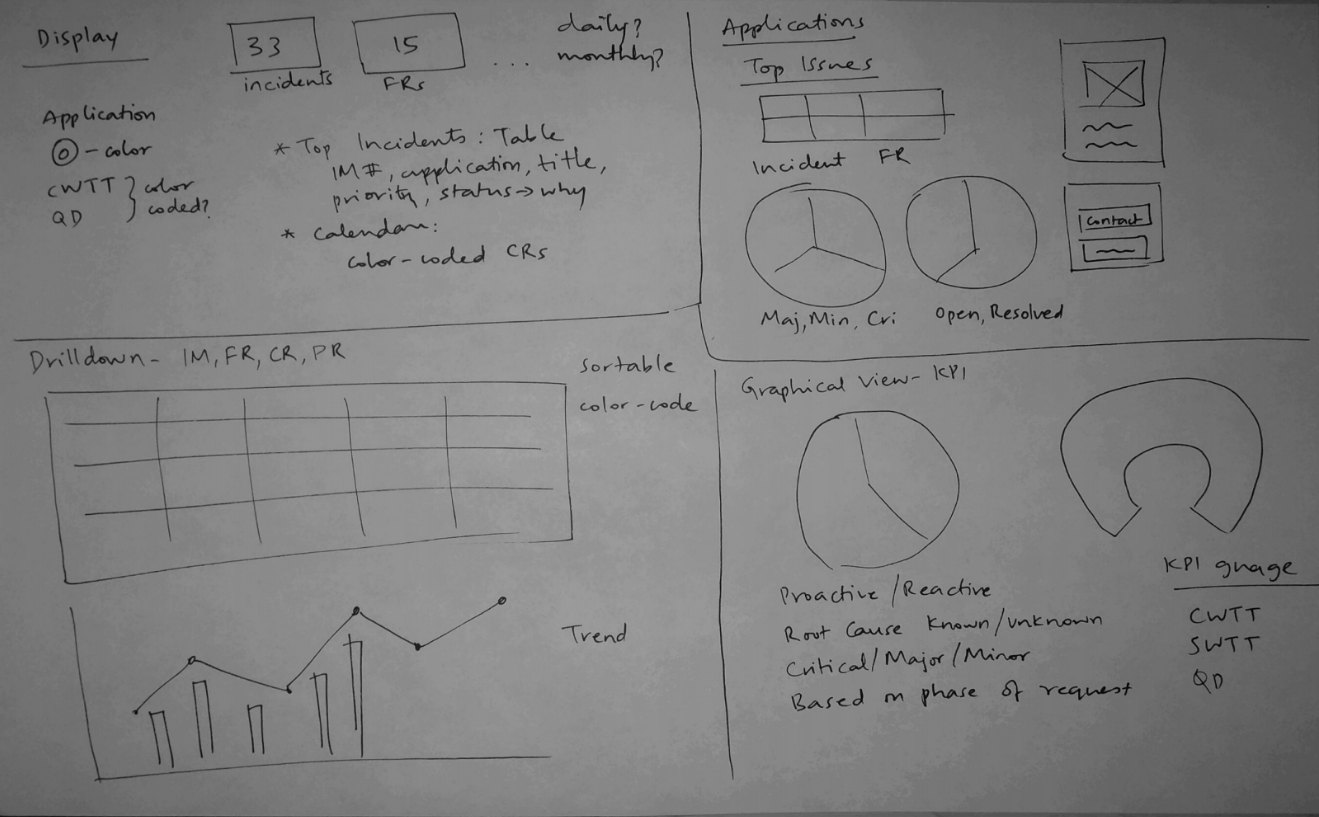 Display
33
incidents
15
FRs
...
daily?
monthly?
Application
O - color
CWTT
QD
color
coded?
* Top Incidents : Table
IM #, application, title,
priority, status → why
* Calendar:
color-coded CRs
Applications
Top Issues
Incident FR
Maj, Min, Cri
Open, Resolved
Contact
Drilldown - IM, FR, CR, PR
Sortable
color-code
Trend
Graphical View - KPI
Proactive / Reactive
Root Cause Known/Unknown
Critical/Major/Minor
Based on phase of request
KPI guage
CWTT
SWTT
QD